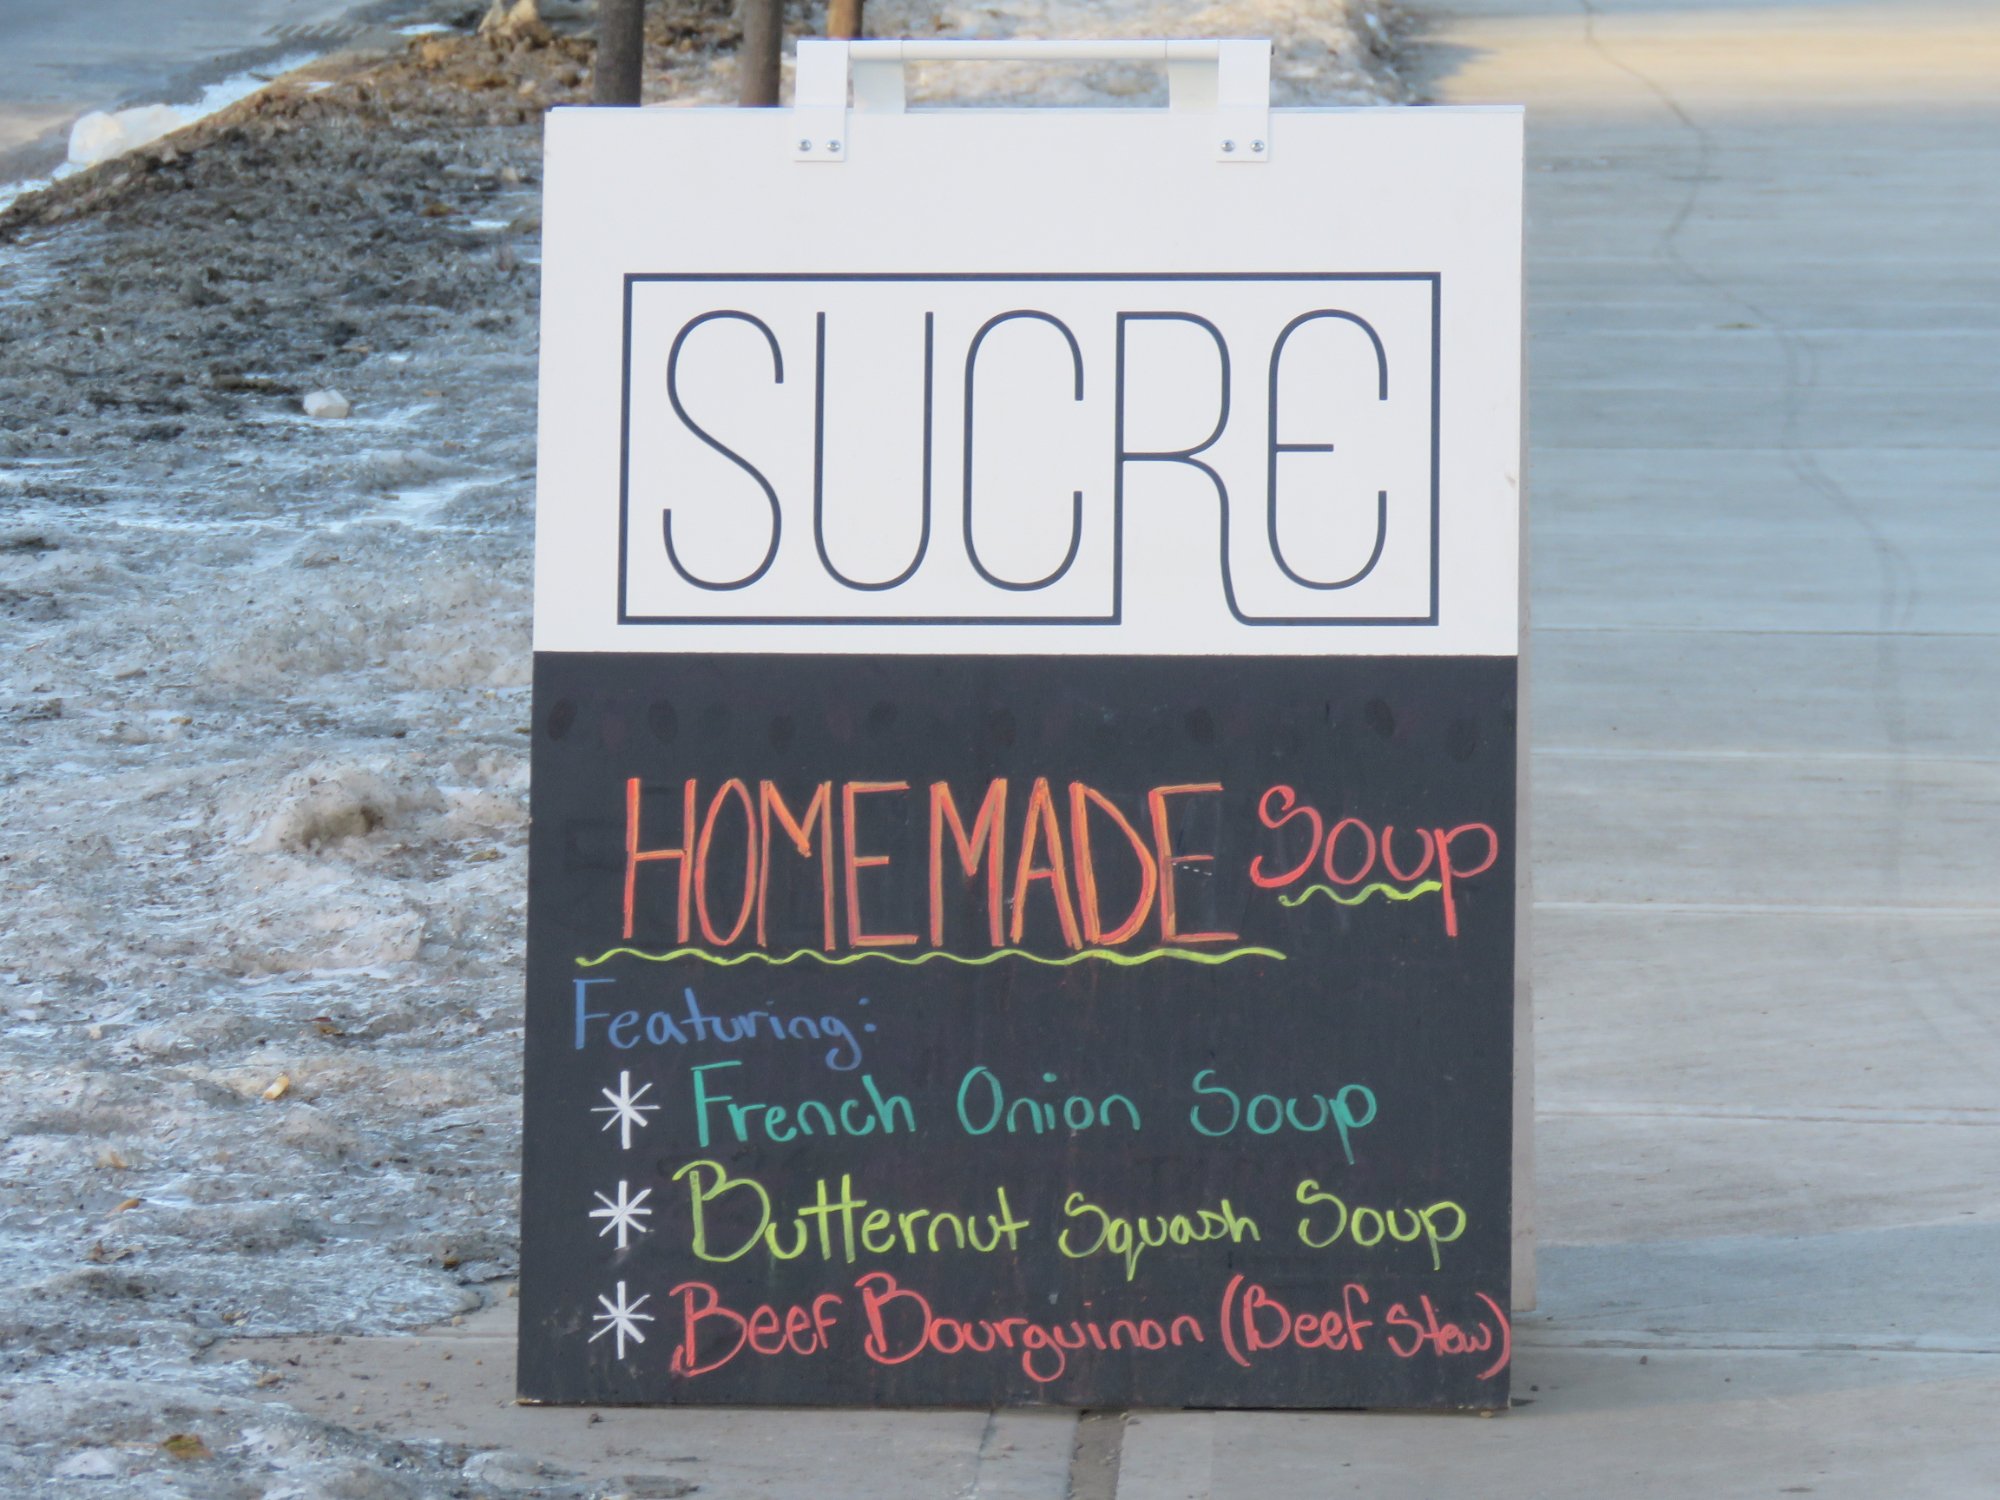 SUCRE
HOMEMADE Soup
Featuring:
* French Onion Soup
* Butternut Squash Soup
* Beef Bourguinon (Beef Stew)